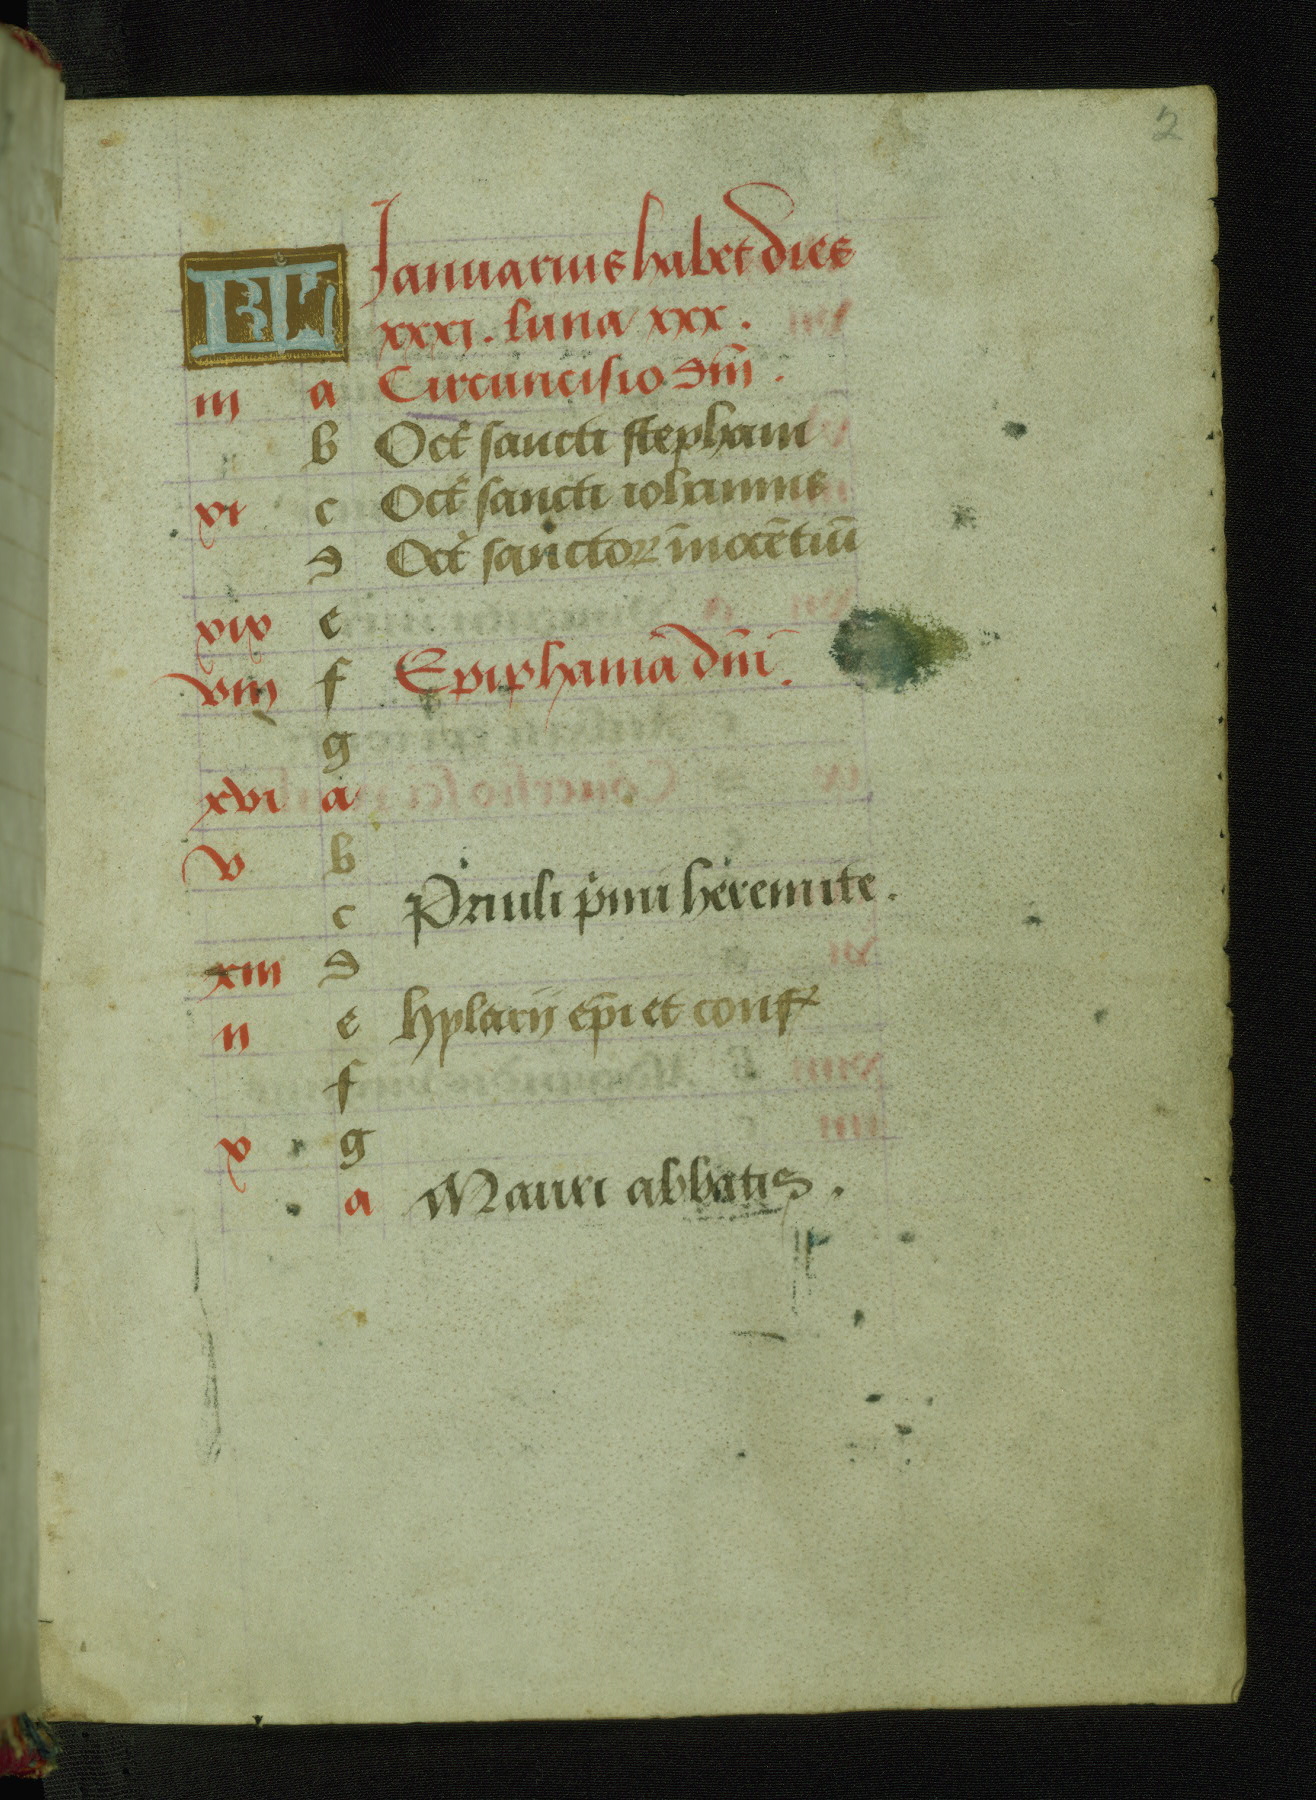 2
KL Januarius habet dies
xxxi. luna xxx.
iii a Circuncisio dñi.
b Oct̃ sancti stephani
xi c Oct̃ sancti iohannis
d Oct̃ sanctoꝝ īnocētiũ
xix e
viii f Epiphania dñi.
g
xvi a
v b
c Pauli p̃mi heremite.
xiii d
ii e hylarij ep̃i et conf
f
x g
a Mauri abbatis.